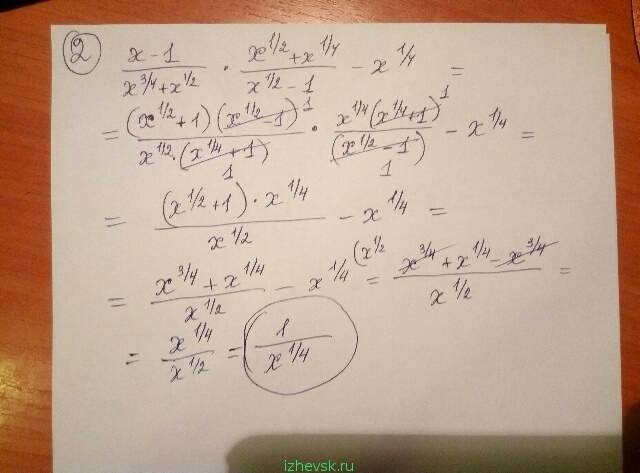 2 (x-1)/(x^3/4+x^1/2) · (x^1/2+x^1/4)/(x^1/2-1) - x^1/4 =
= (x^1/2+1)(x^1/2-1)^1/(x^1/2·(x^1/4+1)) · x^1/4(x^1/4+1)^1/(x^1/2-1) - x^1/4 =
1 1
= (x^1/2+1)·x^1/4/x^1/2 - x^1/4 =
= (x^3/4+x^1/4)/x^1/2 - x^1/4 (x^1/2 = (x^3/4+x^1/4-x^3/4)/x^1/2 =
= x^1/4/x^1/2 = 1/x^1/4
izhevsk.ru